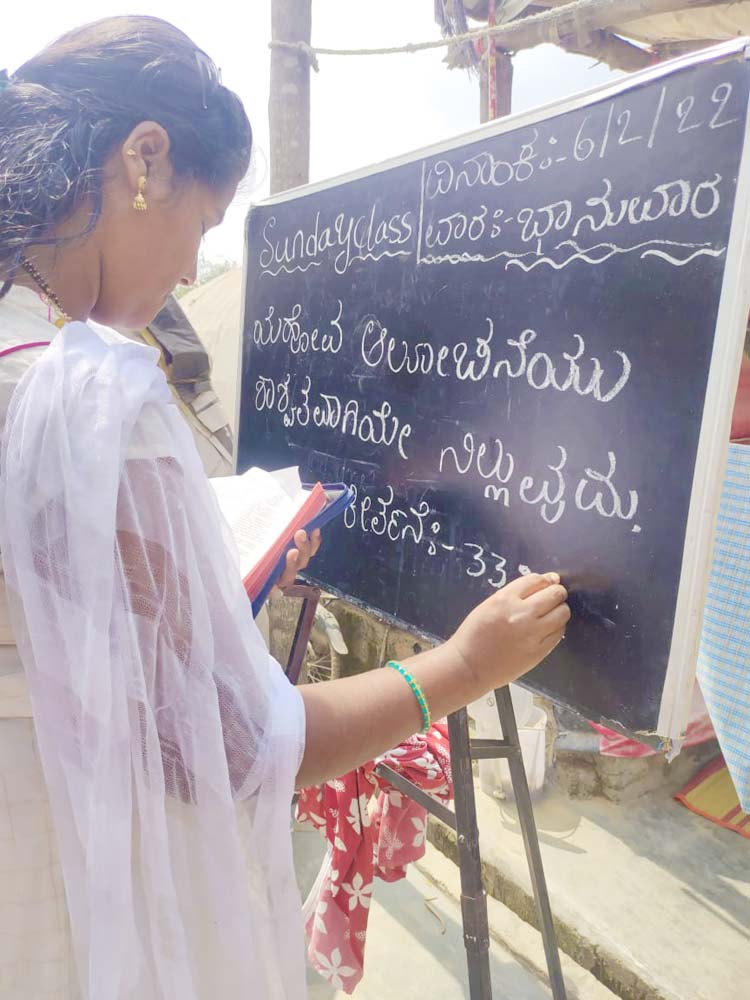 Sunday class
ದಿನಾಂಕ:-6/2/22
ವಾರ:-ಭಾನುವಾರ
ಯೆಹೋವ ಆಲೋಚನೆಯು
ಶಾಶ್ವತವಾಗಿಯೇ ನಿಲ್ಲುವುದು.
ಕೀರ್ತನೆ:-33: